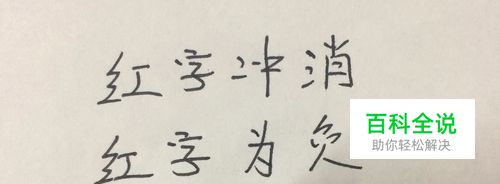 红字冲消
红字为负
百科全说
助你轻松解决